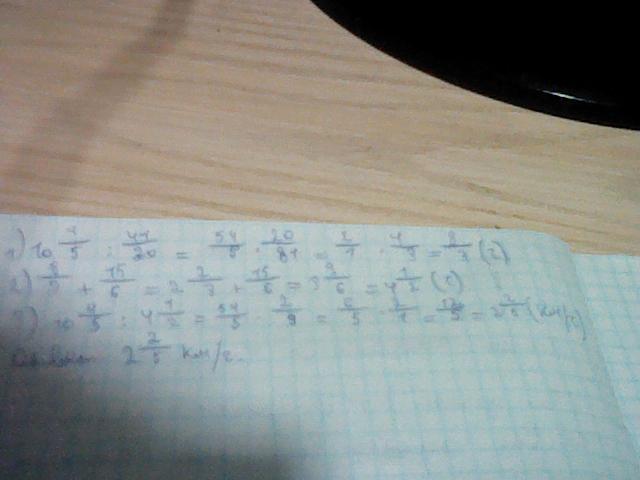 1) 10 4/5 : 81/20 = 54/5 · 20/81 = 2/1 · 4/3 = 8/3 (г)
2) 8/3 + 15/6 = 2 2/3 + 15/6 = 3 9/6 = 4 1/2 (г)
3) 10 4/5 : 4 1/2 = 54/5 · 2/9 = 6/5 · 2/1 = 12/5 = 2 2/5 (км/г)
2 2/5 км/г.